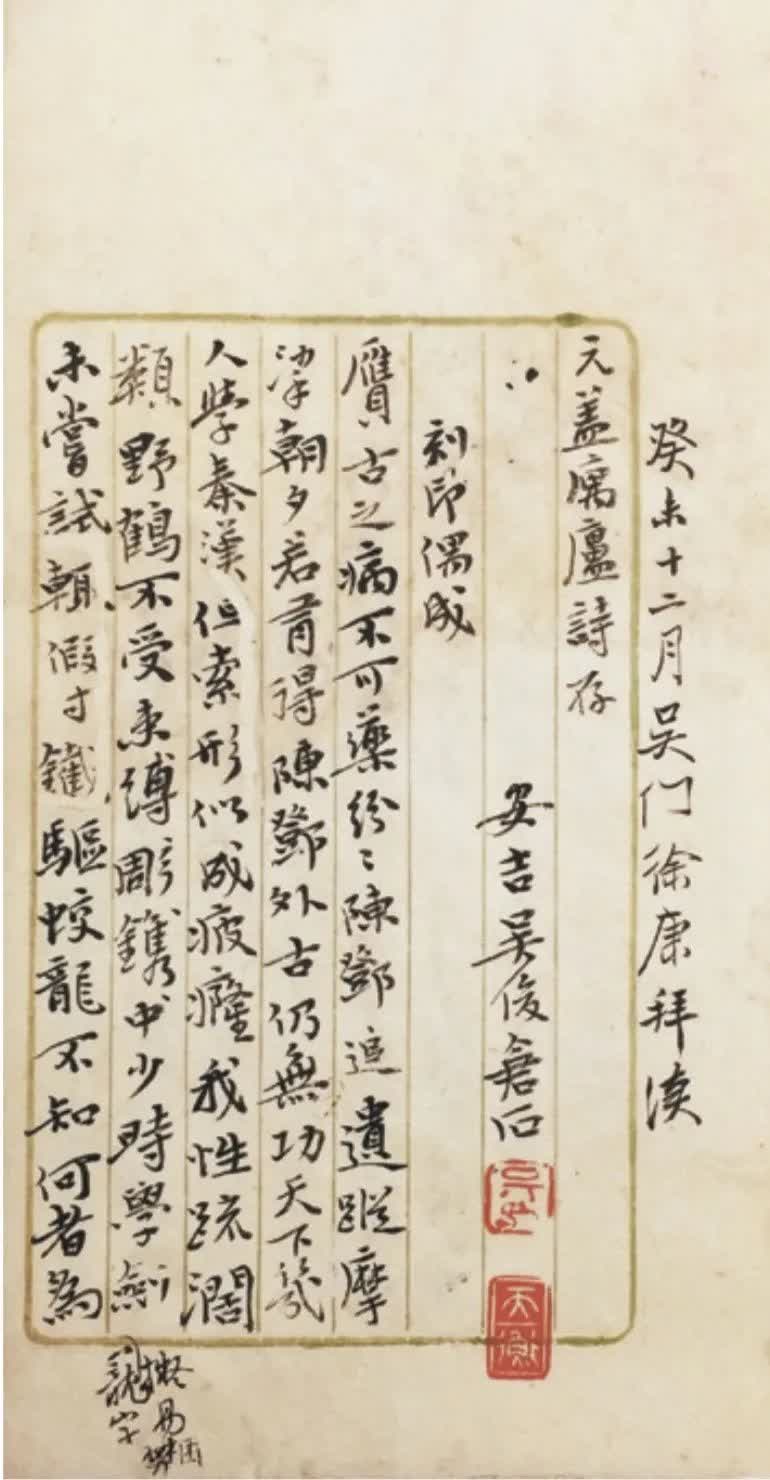 癸未十二月吴门徐康拜讀
元蓋寓廬詩存
安吉吴俊倉石
天衡
刻印偶成
贋古之病不可藥紛〻陳鄧追遺蹤摩
挲朝夕若有得陳鄧外古仍無功天下幾
人學秦漢但索形似成疲癃我性疏闊
類野鶴不受束縛雕鐫中少時學劍
未嘗試輒假寸鐵驅蛟龍不知何者為
擬易
龍字